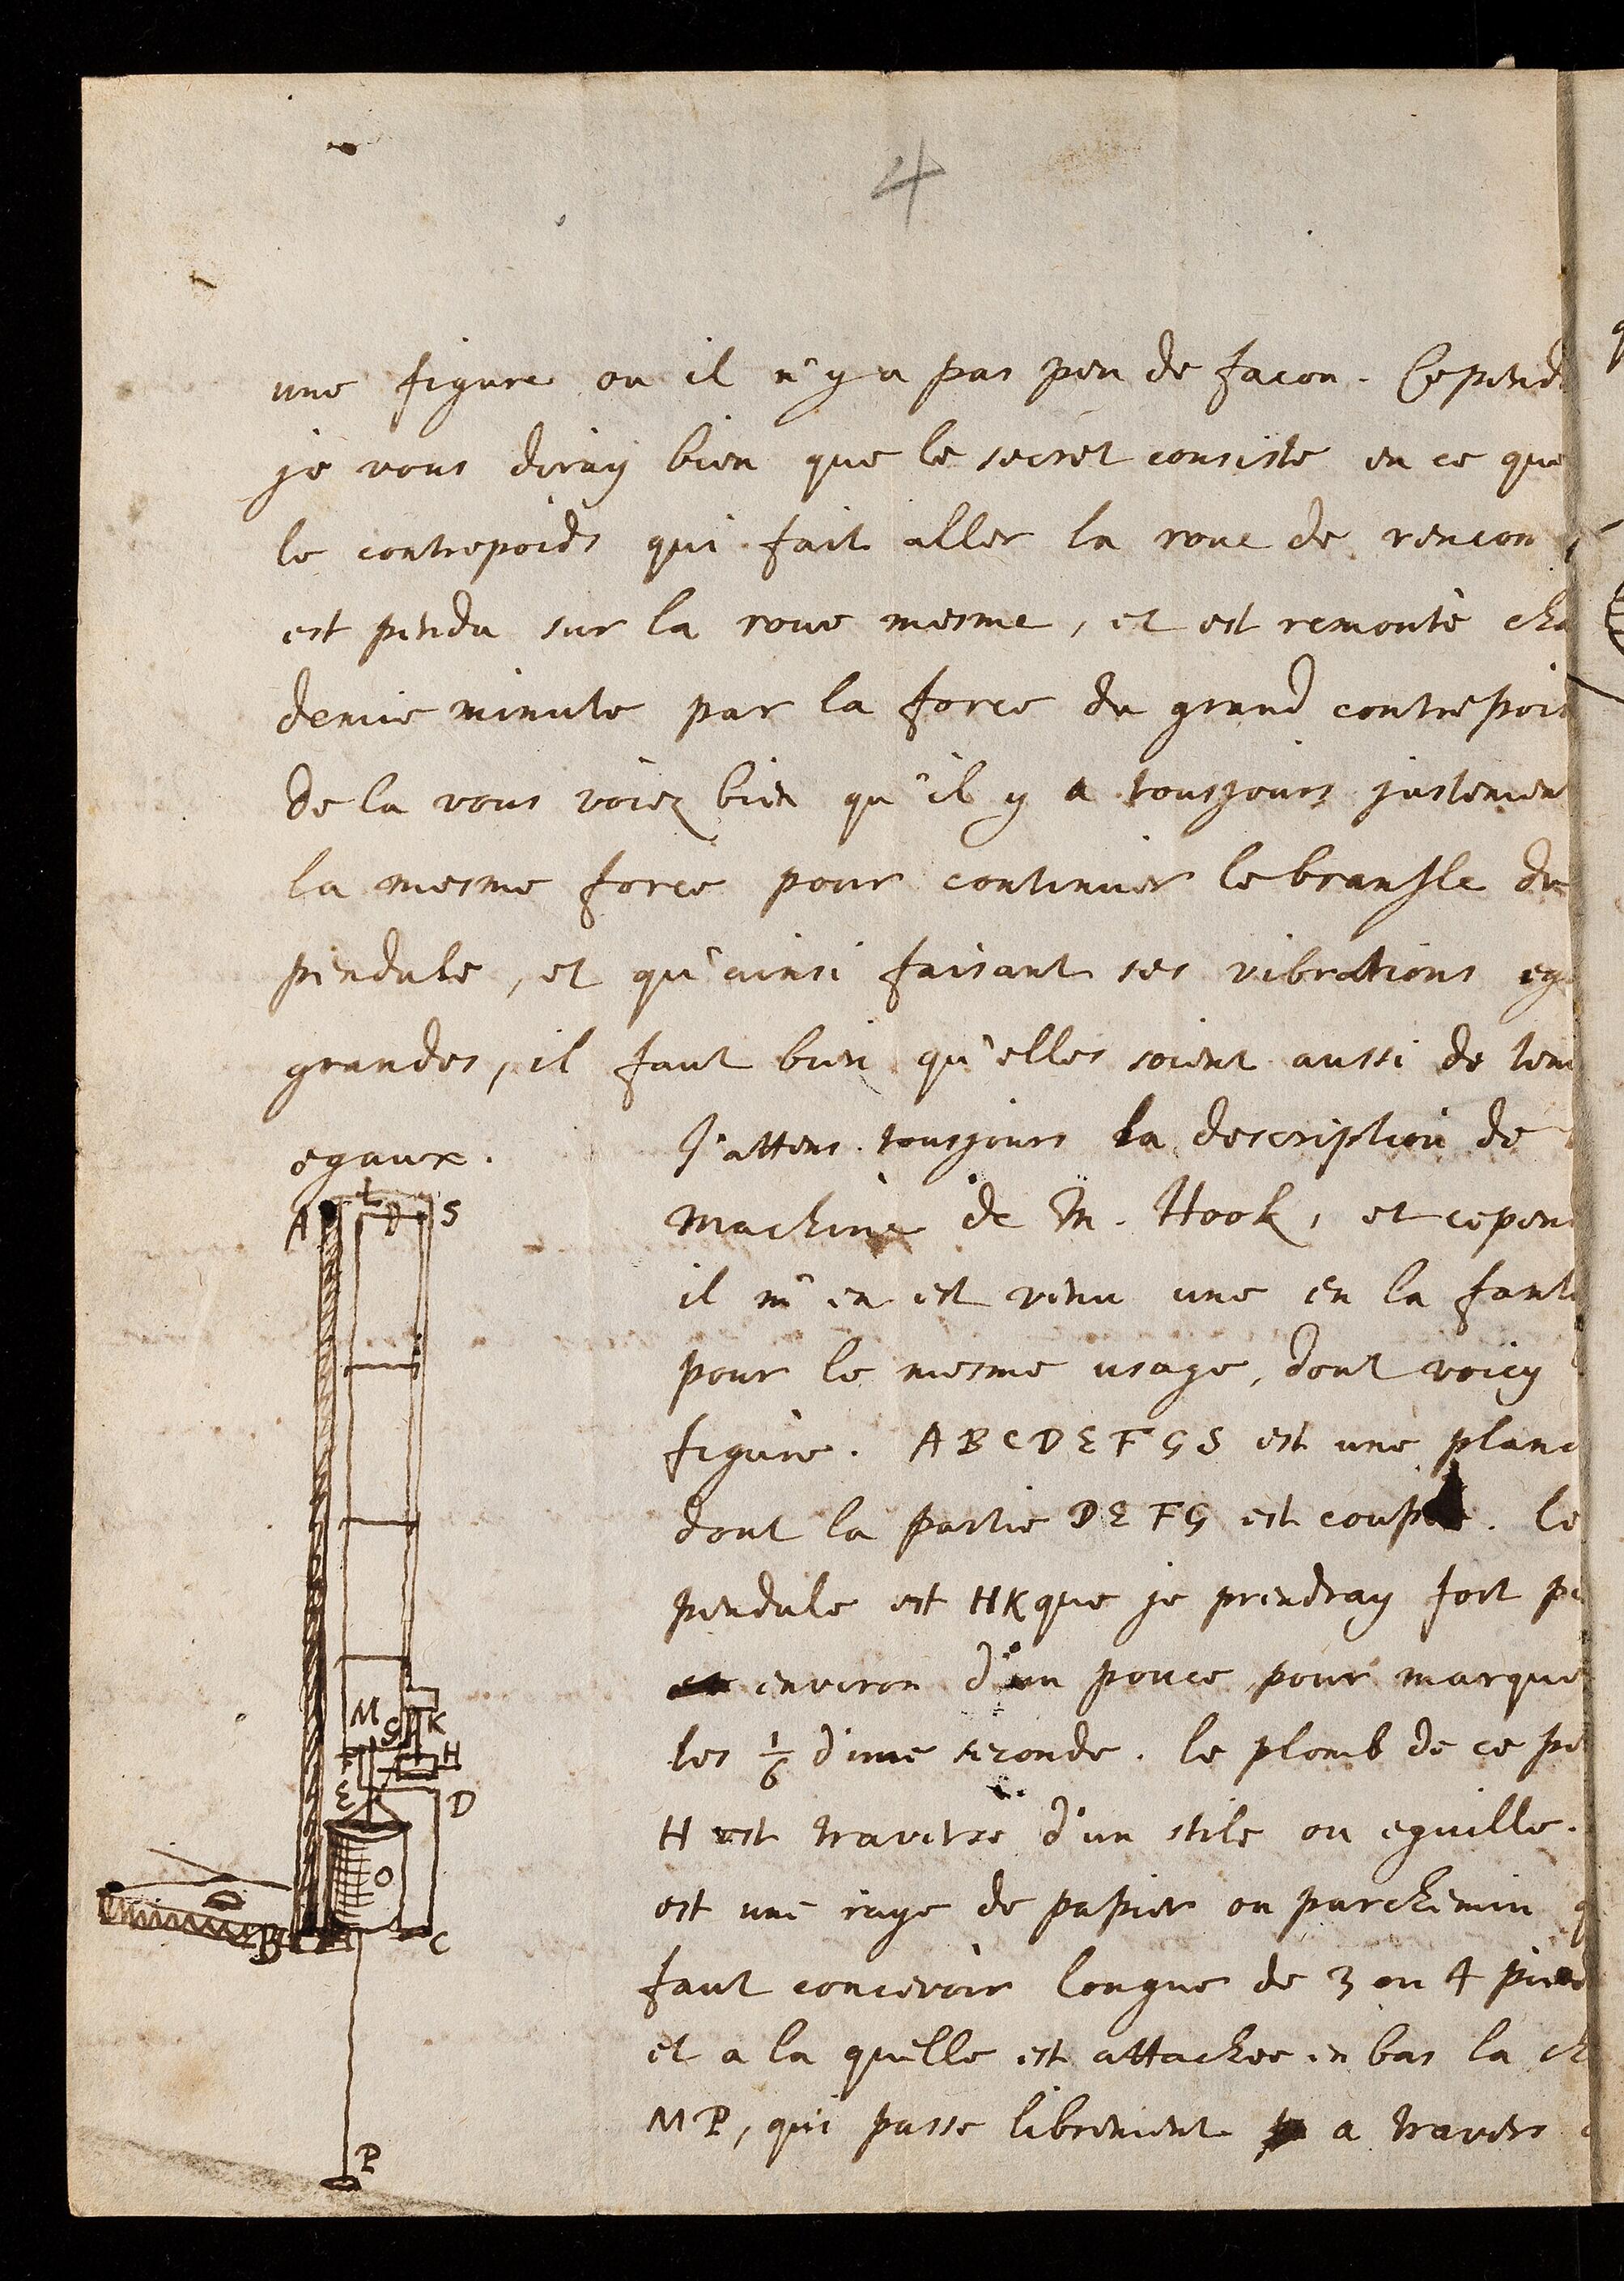 4
une figure ou il n'y a pas peu de facon. Cepend
je vous diray bien que le secret consiste en ce que
le contrepoids qui fait aller la roue de rencon
est pendu sur la roue mesme, et est remontè cha
demie minute par la force du grand contrepoid
de la vous voiez bien qu'il y a tousjours justemen
la mesme force pour continuer le bransle du
pendule, et qu'ainsi faisant ses vibrations eg
grandes, il faut bien qu'elles soient aussi de tem
egaux. J'attens tousjours la description de
machine de M. Hook, et cepen
il m'en est venu une en la fant
pour le mesme usage, dont voicy
figure. ABCDEFGS est une planc
dont la partie DEFG est coupée. Le
pendule est HK que je prendray fort pe
environ d'un pouce pour marquer
les 1/6 d'une seconde. le plomb de ce pe
H est traversè d'un stile ou eguille.
est une raye de papier ou parchemin q
faut concevoir longue de 3 ou 4 pied
et a la quelle est attachee en bas la ch
MP, qui passe librement a travers
A L D S
M G K
F H
E D
O
B C
P